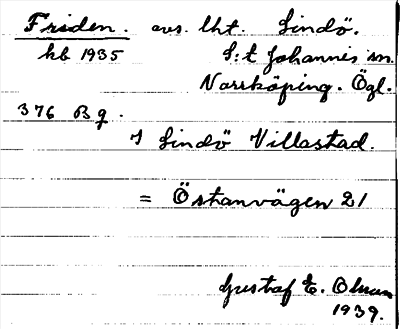 Friden. avs. lht. Lindö.
kb 1935 S:t Johannis sn.
Norrköping. Ögl.
376 B g.
I Lindö Villastad.
= Östanvägen 21
Gustaf E. Olsson
1939.